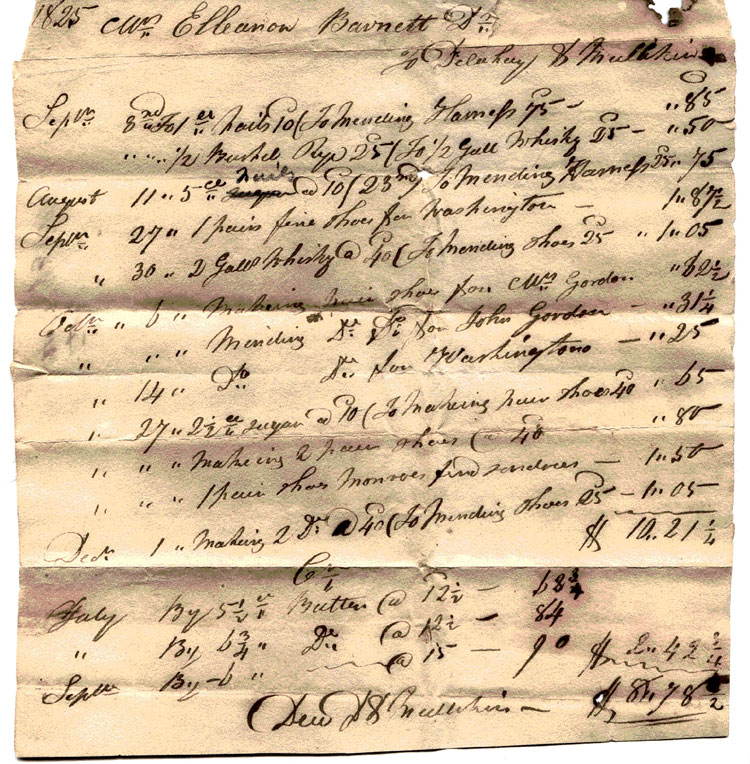 1825 Mrs Elleanor Barnett Dr
To Delahay & Mullikin
Septr 8nd To 1 lb nails 10 (To Mending Harness 75 — " 85
" " 1/2 Bushel Rye 25 (To 1/2 Gall Whisky 25 — " 50
August 11 " 5 lb nails @ 10 (23nd To Mending Harness 25 " 75
Septr 27 " 1 pair fine shoes for Washington — 1 " 87 1/2
" 30 " 2 Galls Whisky @ 40 (To Mending shoes 25 " 1 " 05
Octr " 6 " Making shoes for Mrs Gordon " 62 1/2
" " " Mending Do Do for John Gordon — " 31 1/4
" 14 " Do Do for Washington — " 25
" 27 " 2 1/2 lb sugar @ 10 (To Making pair shoes 40 " 65
" " " Making 2 pair shoes @ 40 " 80
" " " 1 pair shoes Monroes — 1 " 50
Decr 1 " Making 2 Do @ 40 (To Mending shoes 25 — 1 " 05
$ 10 " 21 1/4
Cr
July By 5 1/2 lb Butter @ 12 1/2 — 68 3/4
" By 6 3/4 " Do @ 12 1/2 — 84
Septr By 6 " @ 15 — 90 $ 2 " 42 3/4
Due D & Mullikin — $ 8 " 78 1/2